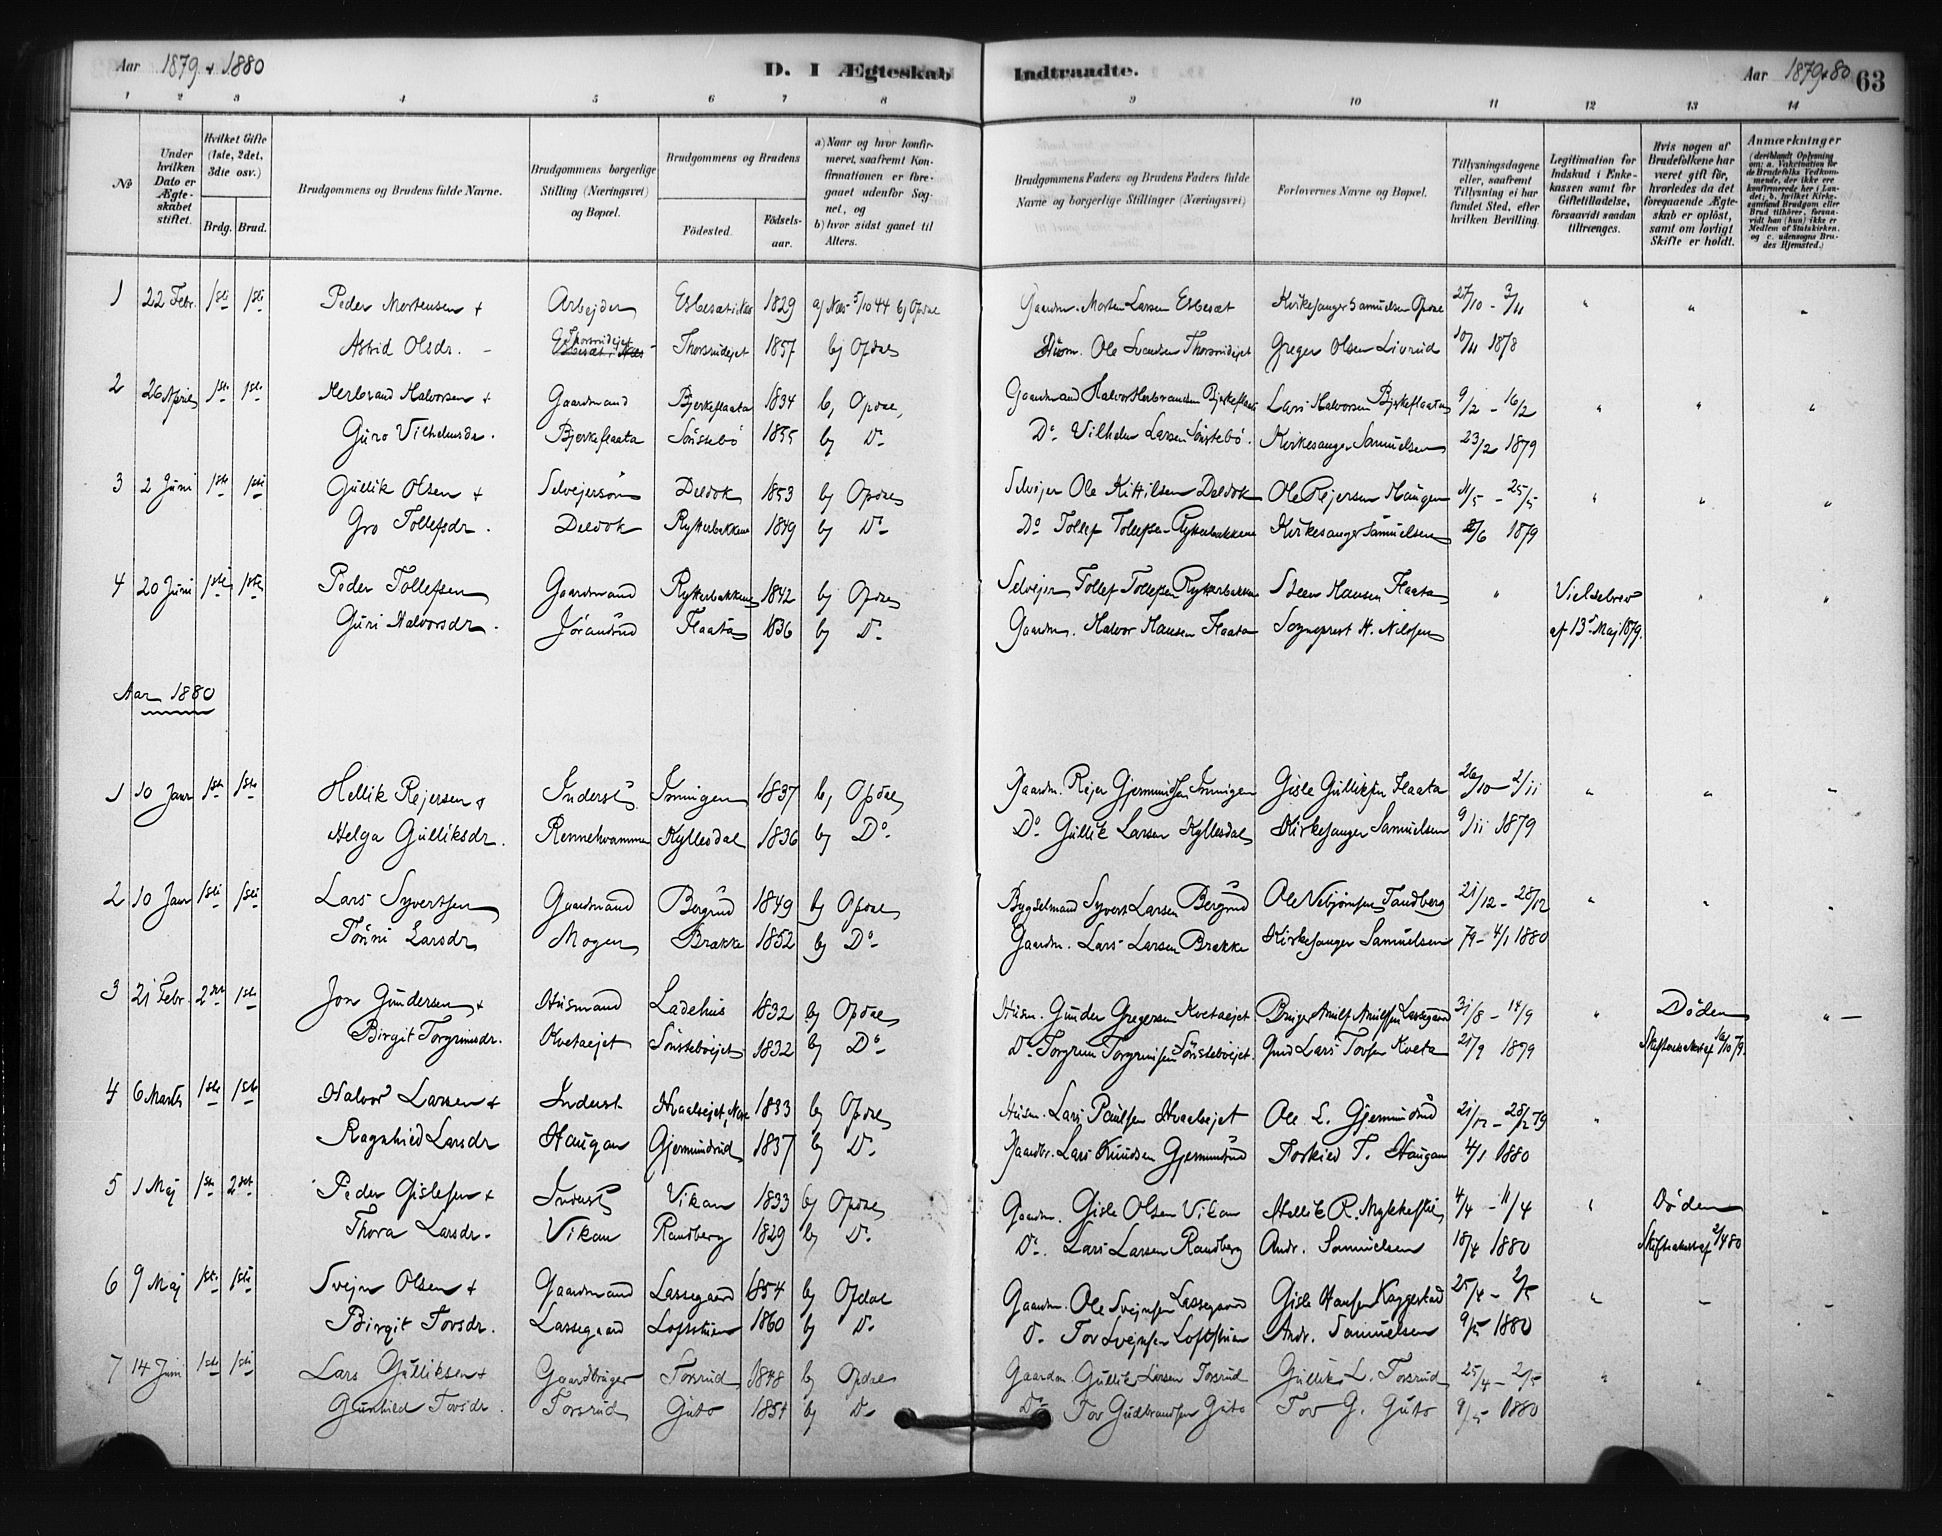 Aar 1879 + 1880 D. I Ægteskab Indtraadte. Aar 1879+80 63
1 2 3 4 5 6 7 8 9 10 11 12 13 14
№
Under hvilken Dato er Ægteskabet stiftet.
Hvilket Gifte (1ste, 2det, 3die osv.)
Brdg. Brud.
Brudgommens og Brudens fulde Navne.
Brudgommens borgerlige Stilling (Næringsvei) og Bopæl.
Brudgommens og Brudens
Fødested. Fødselsaar.
a) Naar og hvor konfirmeret, saafremt Konfirmationen er foregaaet udenfor Sognet, og
b) hvor sidst gaaet til Alters.
Brudgommens Faders og Brudens Faders fulde Navne og borgerlige Stillinger (Næringsvei)
Forlovernes Navne og Bopæl.
Tillysningsdagene eller, saafremt Tillysning ei har fundet Sted, efter hvilken Bevilling.
Legitimation for Indskud i Enkekassen samt for Giftetilladelse, forsaavidt saadan tiltrænges.
Hvis nogen af Brudefolkene har været gift før, hvorledes da det foregaaende Ægteskab er opløst, samt om lovligt Skifte er holdt.
Anmærkninger
1 22 Febr. 1ste 1ste Peder Mortensen + Arbejder Esbesæt i Næs 1829 a) Næs 5/10 44 b) Opdal Gaardm. Morten Larsen Esbesæt Kirkesanger Samuelsen Opdal 27/10 - 3/11 " " "
Astrid Olsdr. - Thorsrudejet Thorsrudejet 1857 b) Opdal Husm. Ole Svendsen Thorsrudejet Greger Olsen Livrud 10/11 1878
2 26 April 1ste 1ste Herbrand Halvorsen + Gaardmand Bjerkeflaata 1834 b) Opdal Gaardmand Halvor Herbrandsen Bjerkeflaata Lars Halvorsen Bjerkeflaata 9/2 - 16/2 " " "
Guro Vilhelmsdr. Bjerkeflaata Sønstebø 1855 b) Do Do Vilhelm Larsen Sønstebø. Kirkesanger Samuelsen 23/2 1879
3 2 Juni 1ste 1ste Gullik Olsen + Selvejersøn Deldok 1853 b) Opdal Selvejer Ole Kittilsen Deldok Ole Rejersen Haugen 11/5 - 25/5 " " "
Gro Tollefsdr. Deldok Rykkerbakkene 1849 b) Do Do Tollef Tollefsen Rykkerbakkene Kirkesanger Samuelsen 2/6 1879
4 20 Juni 1ste 1ste Peder Tollefsen Gaardmand Rykkerbakkene 1842 b) Opdal Selvejer Tollef Tollefsen Rykkerbakken Steen Hansen Flaata " Vielsebrev " "
Guri Halvorsdr. Jørandrud Flaata 1836 b) Do Gaardm. Halvor Hansen Flaata Sogneprest H. Nilssen af 13d Maj 1879.
Aar 1880
1 10 Janr 1ste 1ste Hellik Rejersen + Inderst Imingen 1837 b) Opdal Gaardm. Rejer Gjermundsen Imingen Gisle Gulliksen Flaata 26/10 - 2/11 " " "
Helga Gulliksdr. Rennehvammen Kyllesdal 1836 b) Do Do Gullik Larsen Kyllesdal Kirkesanger Samuelsen 9/11 1879
2 10 Janr 1ste 1ste Lars Syvertsen Gaardmand Bergrud 1849 b) Opdal Bygselmand Syvert Larsen Bergrud Ole Vebjørnsen Tandberg 21/12 - 28/12 " " "
Tønni Larsdr. Mogen Brække 1852 b) Do Gaardm. Lars Larsen Brække Kirkesanger Samuelsen 79 - 4/1 1880
3 21 Febr. 2det 1ste Jon Gundersen + Husmand Ladehus 1832 b) Opdal Husm. Gunder Gregersen Kvetaejet Bruger Arnulf Arnulfsen Lassegaard 31/8 - 14/9 " Døden "
Birgit Torgrimsdr. Kvetaejet Sønstebøejet 1832 b) Do Do Torgrim Torgrimsen Sønstebøejet. Gmd Lars Torsen Kveta 21/9 1879 Skifteattest af 16/10 79.
4 6 Marts 1ste 1ste Halvor Larsen + Inderst Hvaalsejet, Nore 1833 b) Opdal Husm. Lars Paulsen Hvaalsejet Ole L. Gjermundrud 21/12 - 28/12 79 " "
Ragnhild Larsdr Haugan Gjermundrud 1837 b) Do Gaardbr. Lars Knudsen Gjermundrud Torkild T. Haugan 4/1 1880
5 1 Maj 1ste 2det Peder Gislesen + Inderst Vikan 1833 b) Opdal Gaardm. Gisle Olsen Vikan Hellik R. Mykkestu 4/4 - 11/4 " Døden "
Thora Larsdr. Vikan Randberg 1829 b) Do Do. Lars Larsen Randberg Andr. Samuelsen 18/4 1880 Skifteattest af 2/4 80
6 9 Maj 1ste 1ste Svejn Olsen + Gaardmand Lassegaard 1854 b) Opdal Gaardm. Ole Svejnsen Lassegaard Gisle Hansen Kaggestad 25/4 - 2/5 " " "
Birgit Torsdr. Lassegaard Loftstuen 1860 b) Do Do Tov Svejnsen Loftstuen Andr. Samuelsen 9/5 1880
7 14 Juni 1ste 1ste Lars Gulliksen + Gaardbruger Torsrud 1848 b) Opdal Gaardm. Gullik Larsen Torsrud Gullik L. Torsrud 25/4 - 2/5 " " "
Gunhild Tovsdr. Torsrud Guto 1854 b) Do Do Tov Gudbrandsen Guto Tov G. Guto 9/5 1880